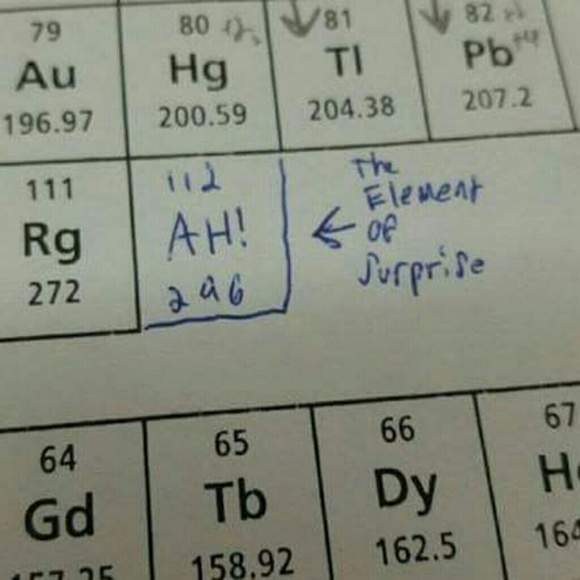 79
Au
196.97
80
Hg
200.59
81
Tl
204.38
82
Pb+4
207.2
111
Rg
272
112
AH!
296
← The
Element
of
Surprise
64
Gd
157.25
65
Tb
158.92
66
Dy
162.5
67